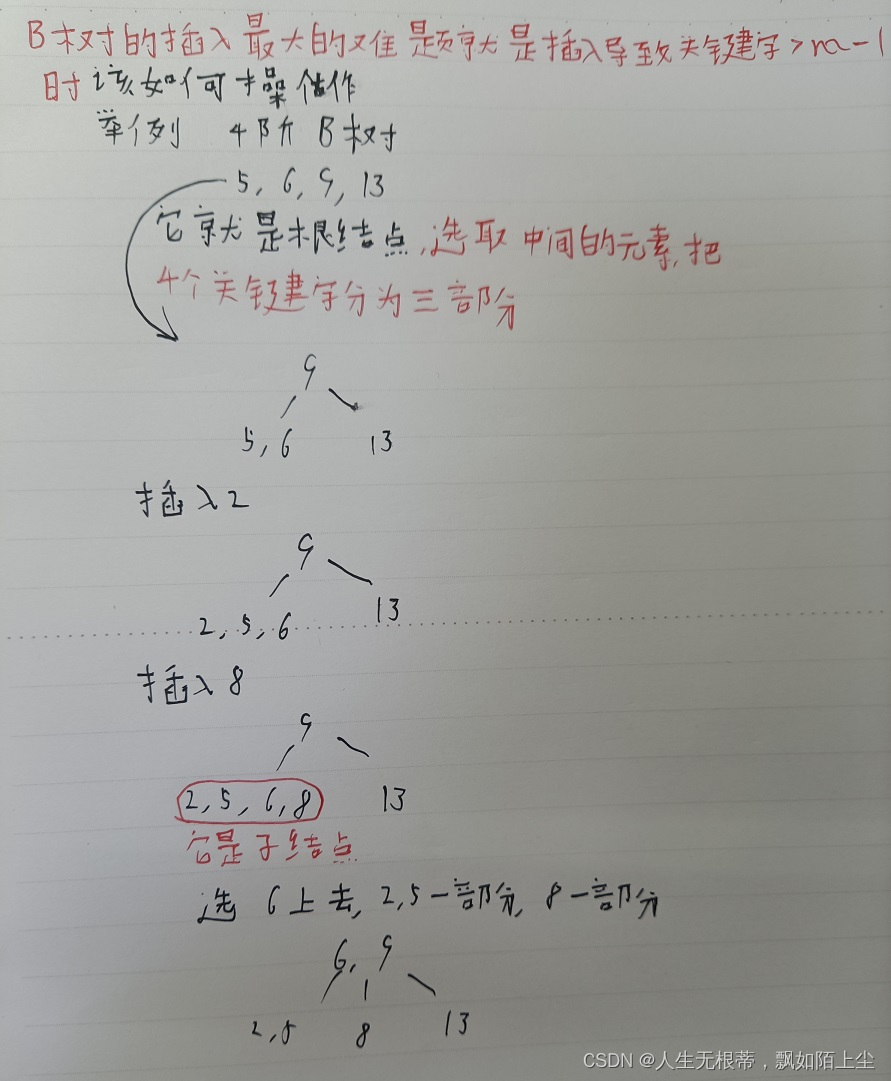 B树的插入最大的难题就是插入导致关键字>m-1
时该如何操作
举例 4阶B树
5, 6, 9, 13
它就是根结点,选取中间的元素,把
4个关键字分为三部分
9
5, 6 13
插入2
9
2, 5, 6 13
插入8
9
2, 5, 6, 8 13
它是子结点
选 6上去, 2,5一部分, 8一部分
6, 9
2,5 8 13
CSDN @人生无根蒂，飘如陌上尘